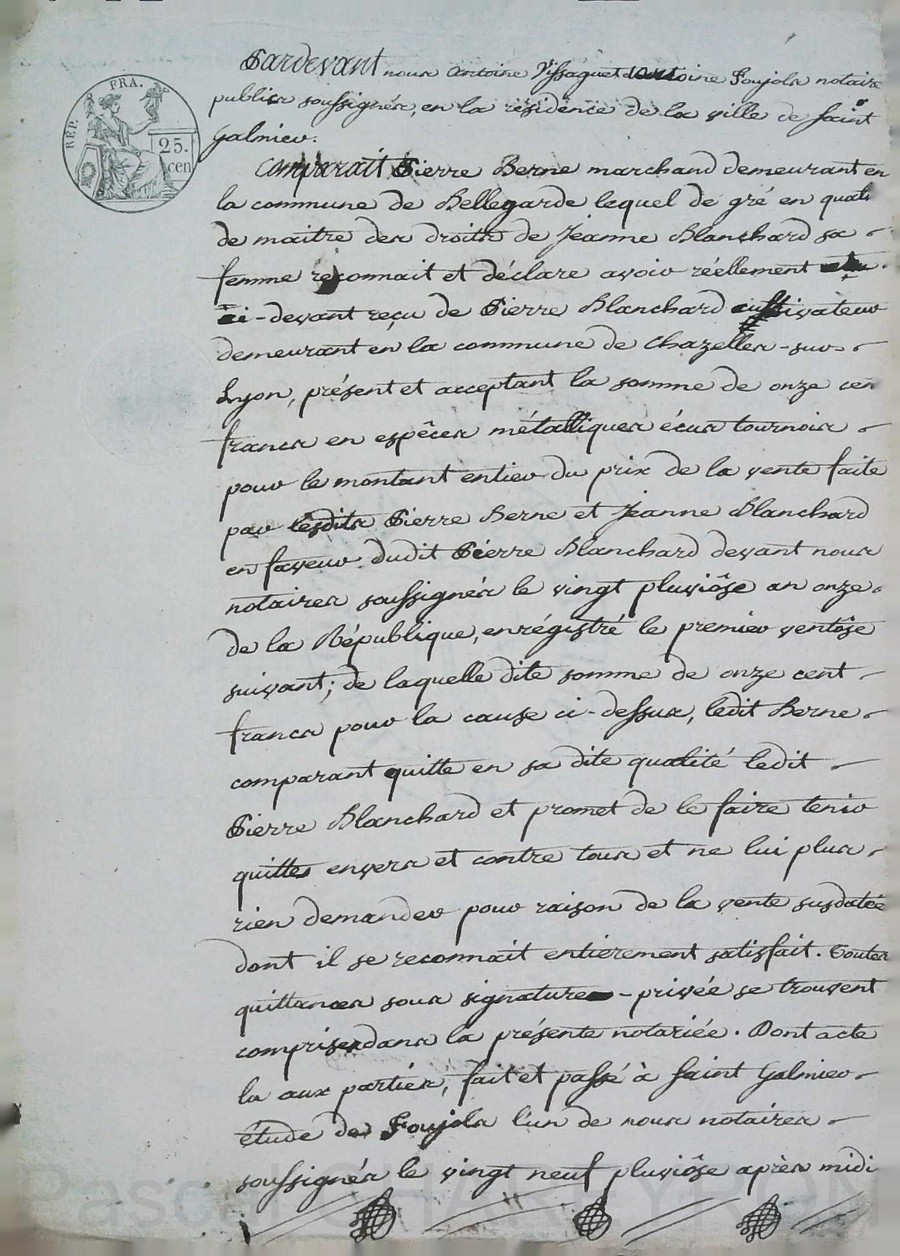 REP. FRA.
25.
cen
Pardevant nous Antoine Vissaguet et antoine Poujols notaire
publics soussignés, en la résidence de la ville de saint
Galmier.
Comparait Pierre Berne marchand demeurant en
la commune de Bellegarde lequel de gré en quali
de maitre des droits de Jeanne Blanchard sa
femme reconnait et déclare avoir réellement
ci-devant reçu de Pierre Blanchard cultivateur
demeurant en la commune de chazelles-sur
Lyon, présent et acceptant la somme de onze cen
francs en espêces métalliques écus tournois
pour le montant entier du prix de la vente faite
par lesdits Pierre Berne et Jeanne Blanchard
en faveur dudit Pierre Blanchard devant nous
notaires soussignés le vingt pluviôse an onze
de la République, enrégistré le premier ventôse
suivant; de laquelle dite somme de onze cent
francs pour la cause ci-dessus, ledit Berne
comparant quitte en sa dite qualité ledit
Pierre Blanchard et promet de le faire tenir
quitte envers et contre tous et ne lui plus
rien demander pour raison de la vente susdatée
dont il se reconnait entièrement satisfait. Toutes
quittances sous signature-privée se trouvent
comprises dans la présente notariée. Dont acte
lu aux parties, fait et passé à saint Galmier
étude de Poujols l'un de nous notaires
soussignés le vingt neuf pluviôse après midi
Pascal CHARLYRON